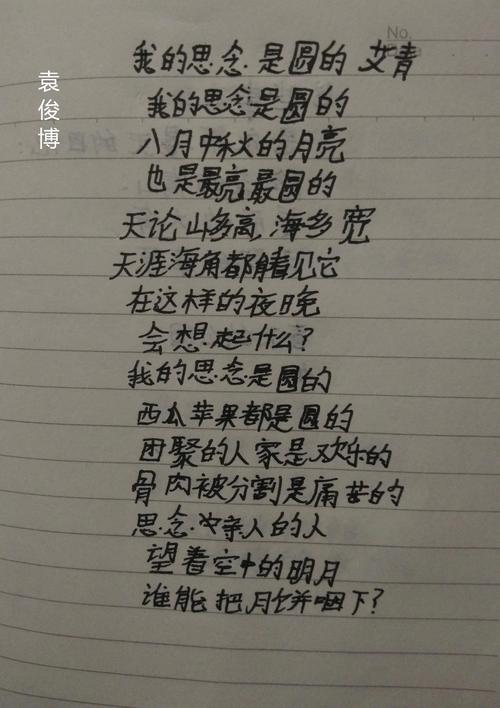 No.
我的思念是圆的 艾青
袁俊博
我的思念是圆的
八月中秋的月亮
也是最亮最圆的
无论山多高 海多宽
天涯海角都能看见它
在这样的夜晚
会想起什么?
我的思念是圆的
西瓜苹果都是圆的
团聚的人家是欢乐的
骨肉被分割是痛苦的
思念亲人的人
望着空中的明月
谁能把月饼咽下?